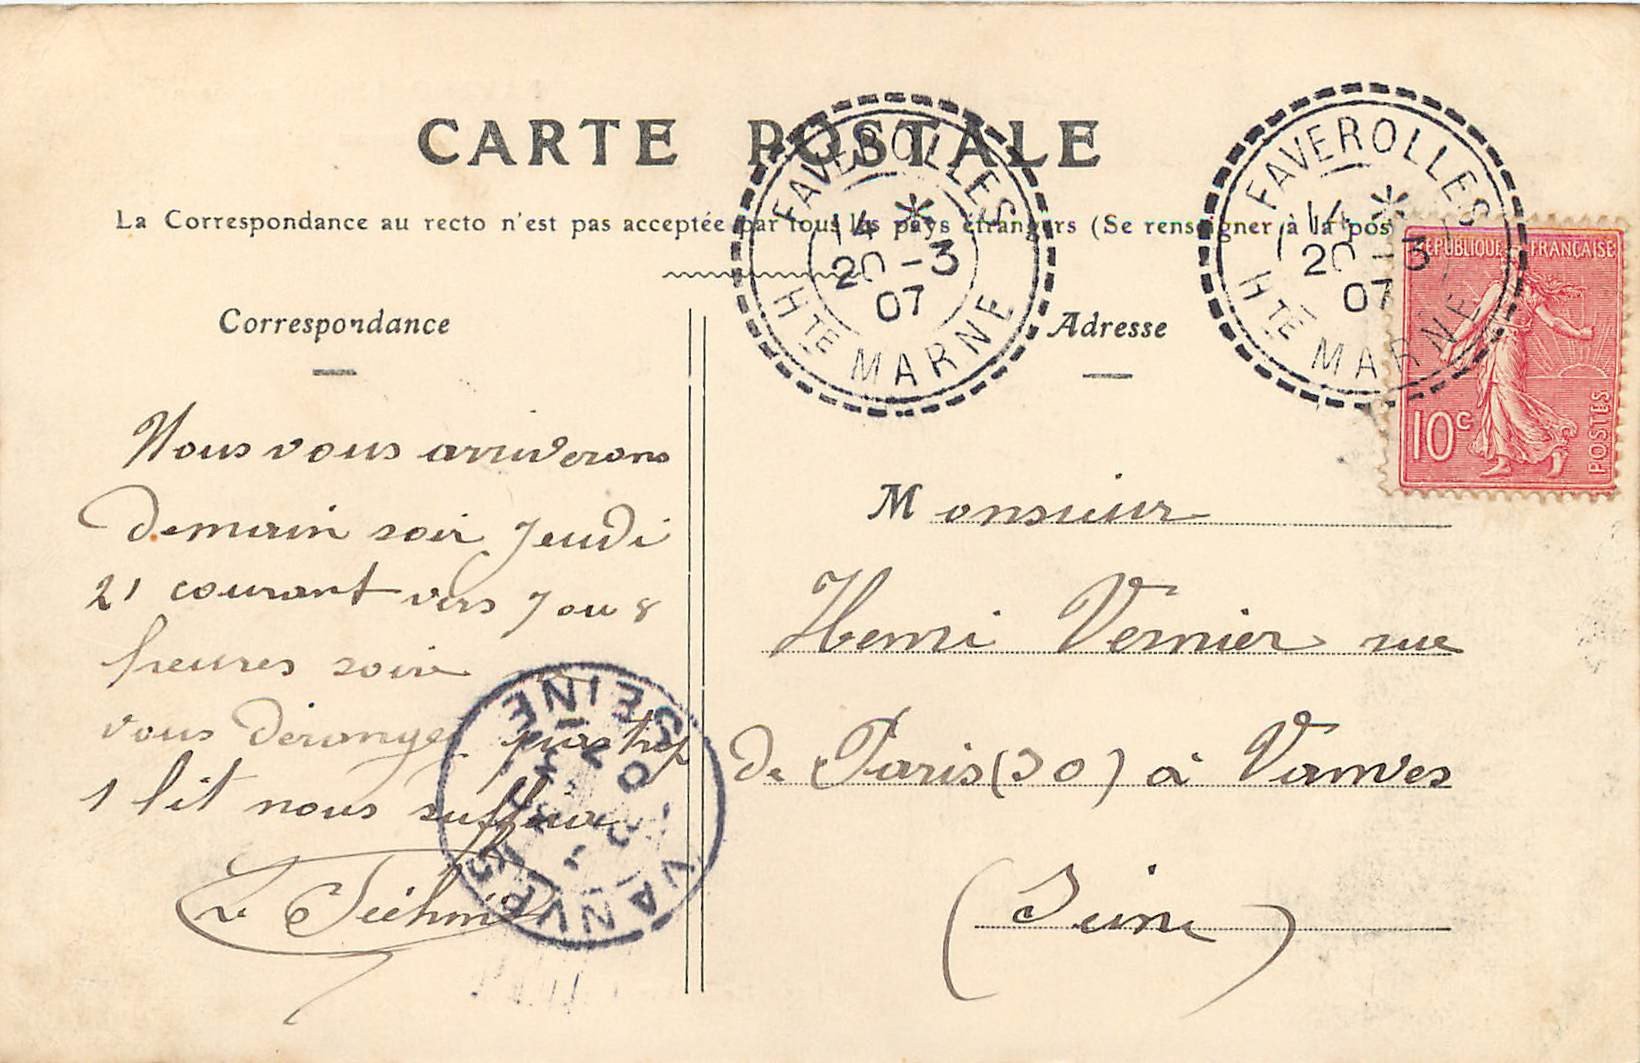 CARTE POSTALE
La Correspondance au recto n'est pas acceptée par tous les pays étrangers (Se renseigner à la pos
FAVEROLLES
14 *
20 -3
07
HTE MARNE
FAVEROLLES
14 *
20 -3
07
HTE MARNE
REPUBLIQUE FRANÇAISE
10c
POSTES
Correspondance
Nous vous arriverons
demain soir Jeudi
21 courant vers 7 ou 8
heures soir
vous déranger pas trop
1 lit nous suffira
VANVES
SEINE
Adresse
Monsieur
Henri Vernier rue
de Paris (30) à Vanves
(Seine)